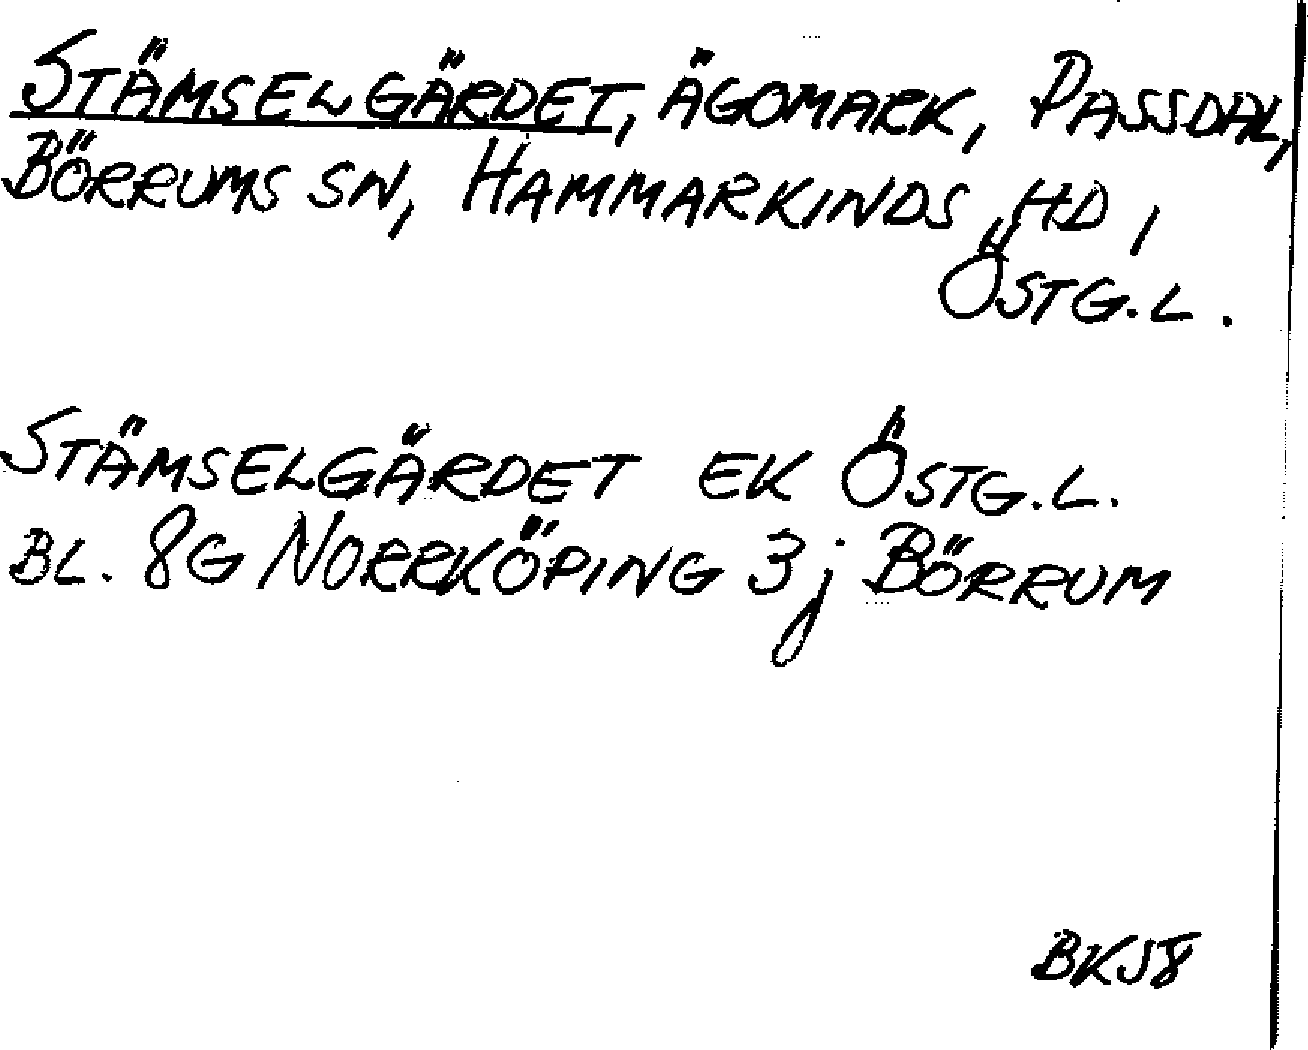 STÄMSELGÄRDET, ÄGOMARK, PASSDAL,
BÖRRUMS SN, HAMMARKINDS HD,
ÖSTG.L.
STÄMSELGÄRDET EK ÖSTG.L.
BL. 8G NORRKÖPING 3j BÖRRUM
BK58